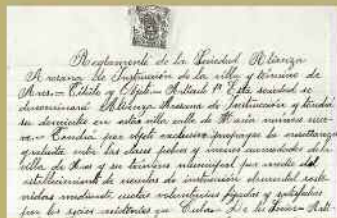 Reglamento de la Sociedad Alianza
Aresana de Instrucción de la villa y término de
Ares.— Título y Objeto.— Artículo 1º Esta sociedad se
denominará Alianza Aresana de Instrucción y tendrá
su domicilio en esta villa calle de María número nue-
ve.— Tendrá por objeto exclusivo propagar la enseñanza
gratuita entre las clases pobres y menos acomodadas de la
villa de Ares y su término municipal por medio del
establecimiento de escuelas de instrucción elemental soste-
nidas mediante cuotas voluntarias fijadas y satisfechas
por los socios residentes en Cuba.— De los Socios.— Artí-